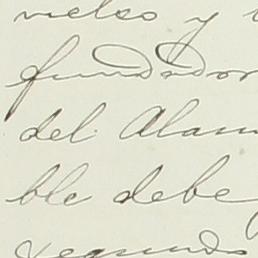 vicios y
fundador
del Alam
ble debe
segundo